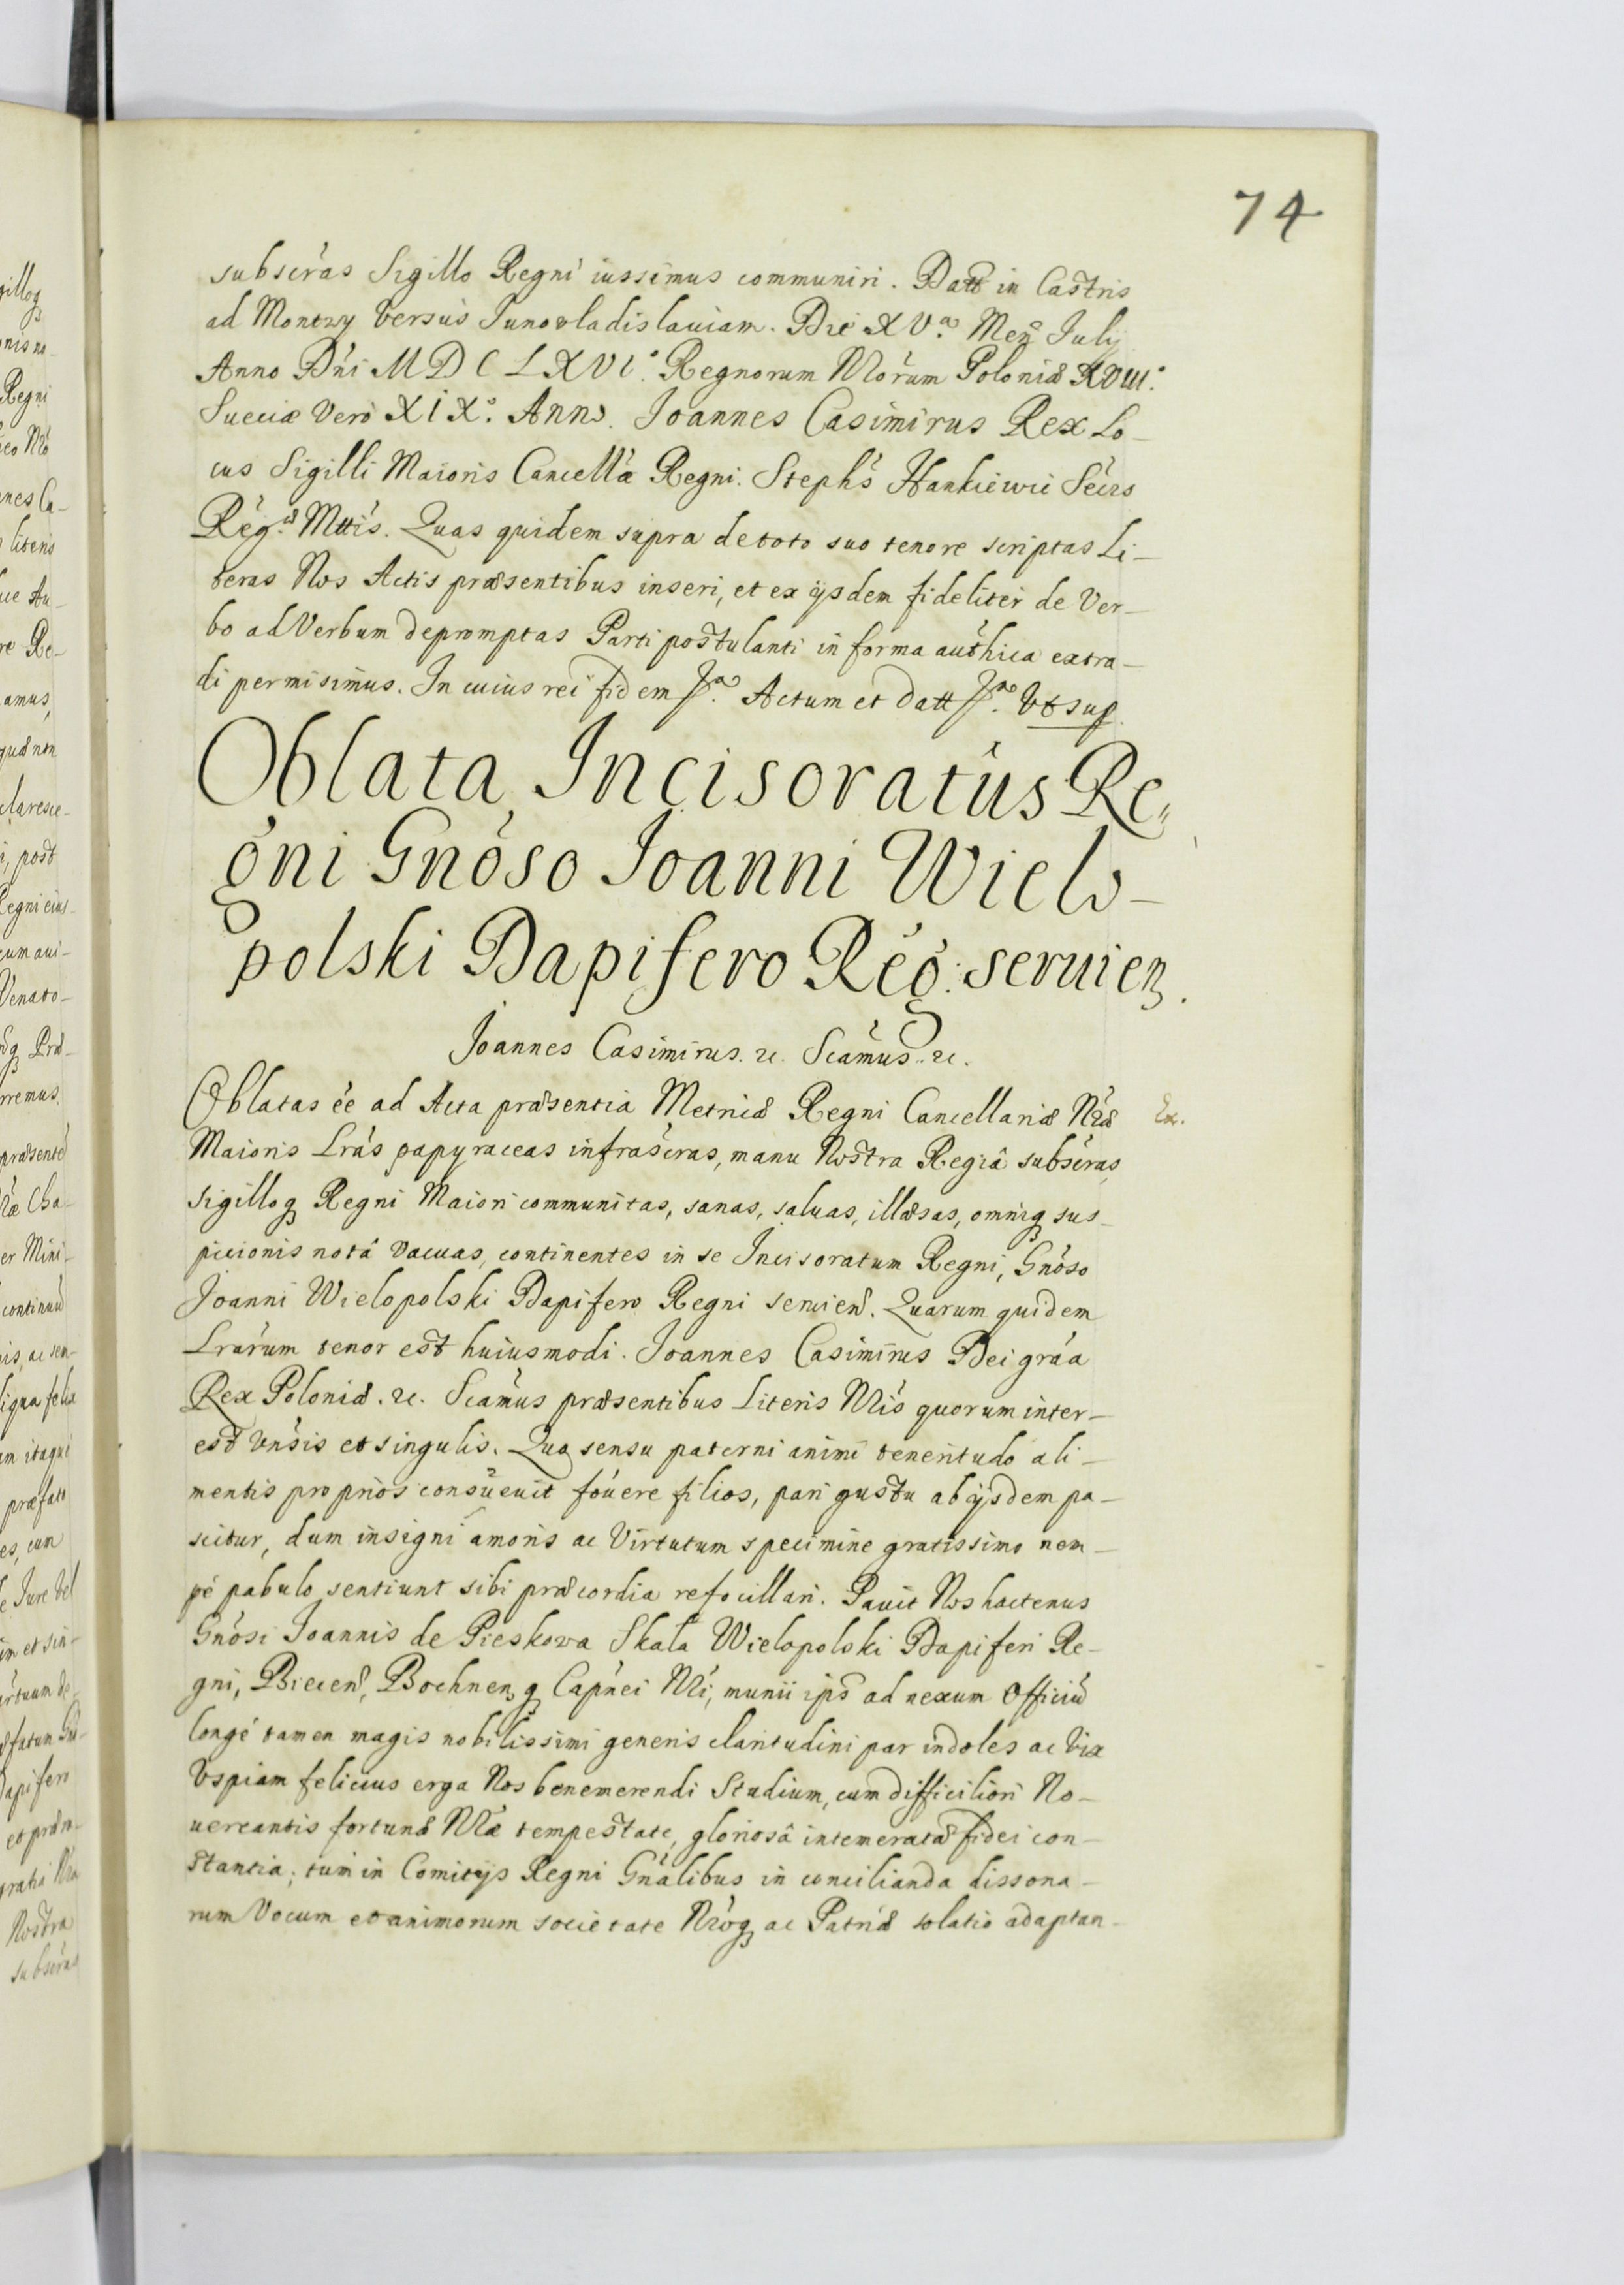 74
subscr̀as Sigillo Regni iussimus communiri. Datt in Castris
ad Montwy versùs Junowladislauiam. Die XVa. Men̄ Julij
Anno Dn̄i MDCLXVIo. Regnorum Nrorum Poloniæ XVIIIo.
Sueciæ verò XIXo. Anno. Joannes Casimirus Rex Lo-
cus Sigilli Maioris Cancellæ Regni. Stephs Hankiewic Secrs
Regæ Mttis. Quas quidem supra de toto suo tenore scriptas Li-
teras Nos Actis præsentibus inseri, et ex ijsdem fideliter de Ver-
bo ad Verbum depromptas Parti postulanti in forma authica extra-
di permisimus. In cuius rei fidem pa. Actum et Datt pa. Vt sup.
Oblata Incisoratûs Re-
gni Gnoso Joanni Wielo-
polski Dapifero Reg: seruien.
Joannes Casimirus. &c. Scamus. &c.
Oblatas ée ad Acta præsentia Metricæ Regni Cancellariæ Nræ
Ex.
Maioris Lras papyraceas infrascras, manu Nostra Regiâ subscras,
sigilloq Regni Maiori communitas, sanas, saluas, illæsas, omniq sus-
picionis notâ vacuas, continentes in se Incisoratum Regni, Gnoso
Joanni Wielopolski Dapifero Regni seruien. Quarum quidem
Lrarum tenor est huiusmodi. Joannes Casimirus Dei graa
Rex Poloniæ. &c. Scamus præsentibus Literis Nris quorum inter-
est vnsis et singulis. Quo sensu paterni animi teneritudo ali-
mentis proprios consueuit fouere filios, pari gustu ab ijsdem pa-
scitur, dum insigni amoris ac Virtutum specimine gratissimo nem-
pè pabulo sentiunt sibi præcordia refocillari. Pauit Nos hactenus
Gnosi Joannis de Pieskowa Skała Wielopolski Dapiferi Re-
gni, Biecen, Bochnenq Capnei Nri, munii ips ad nexum Officiu
longè tamen magis nobilissimi generis claritudini par indoles ac vix
Vspiam felicius erga Nos benemerendi Studium, cum difficiliori No-
uercantis fortunæ Nræ tempestate, gloriosâ intemeratæ fidei con-
stantia; tum in Comitijs Regni Gnalibus in concilianda dissona-
rum Vocum et animorum societate Nroq ac Patriæ solatio adaptan-